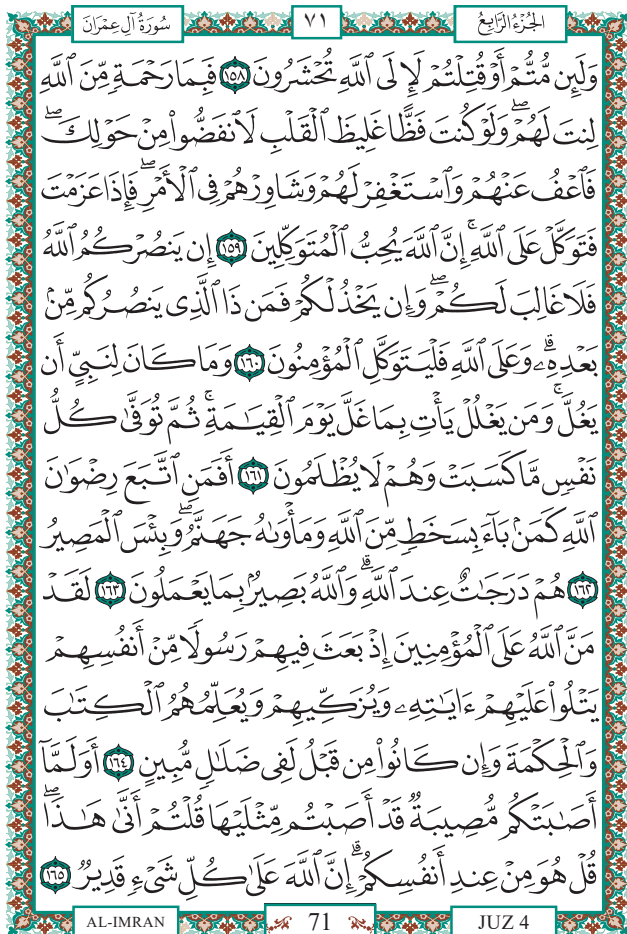 سُورَةُ آلِ عِمْرَانَ ٧١ الجُزْءُ الرَّابِعُ
وَلَئِن مُّتُّمْ أَوْ قُتِلْتُمْ لَإِلَى ٱللَّهِ تُحْشَرُونَ ١٥٨ فَبِمَا رَحْمَةٍ مِّنَ ٱللَّهِ
لِنتَ لَهُمْۖ وَلَوْ كُنتَ فَظًّا غَلِيظَ ٱلْقَلْبِ لَٱنفَضُّوا۟ مِنْ حَوْلِكَۖ
فَٱعْفُ عَنْهُمْ وَٱسْتَغْفِرْ لَهُمْ وَشَاوِرْهُمْ فِى ٱلْأَمْرِۖ فَإِذَا عَزَمْتَ
فَتَوَكَّلْ عَلَى ٱللَّهِۚ إِنَّ ٱللَّهَ يُحِبُّ ٱلْمُتَوَكِّلِينَ ١٥٩ إِن يَنصُرْكُمُ ٱللَّهُ
فَلَا غَالِبَ لَكُمْۖ وَإِن يَخْذُلْكُمْ فَمَن ذَا ٱلَّذِى يَنصُرُكُم مِّنۢ
بَعْدِهِۦۗ وَعَلَى ٱللَّهِ فَلْيَتَوَكَّلِ ٱلْمُؤْمِنُونَ ١٦٠ وَمَا كَانَ لِنَبِىٍّ أَن
يَغُلَّۚ وَمَن يَغْلُلْ يَأْتِ بِمَا غَلَّ يَوْمَ ٱلْقِيَـٰمَةِۚ ثُمَّ تُوَفَّىٰ كُلُّ
نَفْسٍ مَّا كَسَبَتْ وَهُمْ لَا يُظْلَمُونَ ١٦١ أَفَمَنِ ٱتَّبَعَ رِضْوَٰنَ
ٱللَّهِ كَمَنۢ بَآءَ بِسَخَطٍ مِّنَ ٱللَّهِ وَمَأْوَىٰهُ جَهَنَّمُۖ وَبِئْسَ ٱلْمَصِيرُ
١٦٢ هُمْ دَرَجَـٰتٌ عِندَ ٱللَّهِۗ وَٱللَّهُ بَصِيرٌۢ بِمَا يَعْمَلُونَ ١٦٣ لَقَدْ
مَنَّ ٱللَّهُ عَلَى ٱلْمُؤْمِنِينَ إِذْ بَعَثَ فِيهِمْ رَسُولًا مِّنْ أَنفُسِهِمْ
يَتْلُوا۟ عَلَيْهِمْ ءَايَـٰتِهِۦ وَيُزَكِّيهِمْ وَيُعَلِّمُهُمُ ٱلْكِتَـٰبَ
وَٱلْحِكْمَةَ وَإِن كَانُوا۟ مِن قَبْلُ لَفِى ضَلَـٰلٍ مُّبِينٍ ١٦٤ أَوَلَمَّآ
أَصَـٰبَتْكُم مُّصِيبَةٌ قَدْ أَصَبْتُم مِّثْلَيْهَا قُلْتُمْ أَنَّىٰ هَـٰذَاۖ
قُلْ هُوَ مِنْ عِندِ أَنفُسِكُمْۗ إِنَّ ٱللَّهَ عَلَىٰ كُلِّ شَىْءٍ قَدِيرٌ ١٦٥
AL-IMRAN 71 JUZ 4